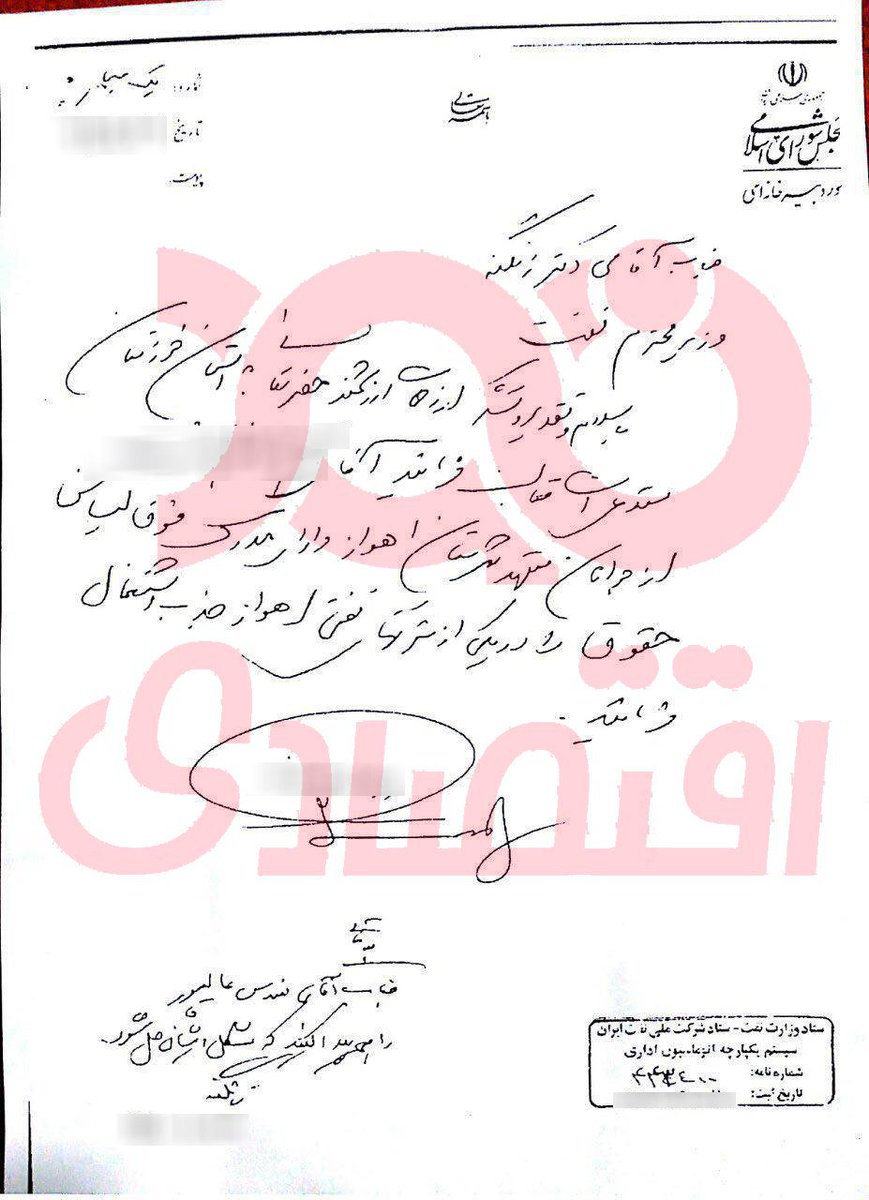 جمهوری اسلامی ایران
مجلس شورای اسلامی
باسمه تعالی
شماره:
تاریخ
پیوست
جناب آقای دکتر زنگنه
وزیر محترم نفت
با سلام و تقدیر و تشکر از زحمات ارزشمند حضرتعالی
مستدعی است فرمائید آقای
از جوانان متعهد شهرستان اهواز دارای مدرک فوق لیسانس
حقوق را در یکی از شرکتهای نفتی اهواز جذب اشتغال
فرمائید.
نود
اقتصادی
جناب آقای مهندس عالیپور
راهی پیدا کنید که مشکل ایشان حل شود
زنگنه
ستاد وزارت نفت - ستاد شرکت ملی نفت ایران
سیستم یکپارچه اتوماسیون اداری
شماره نامه:
تاریخ ثبت: